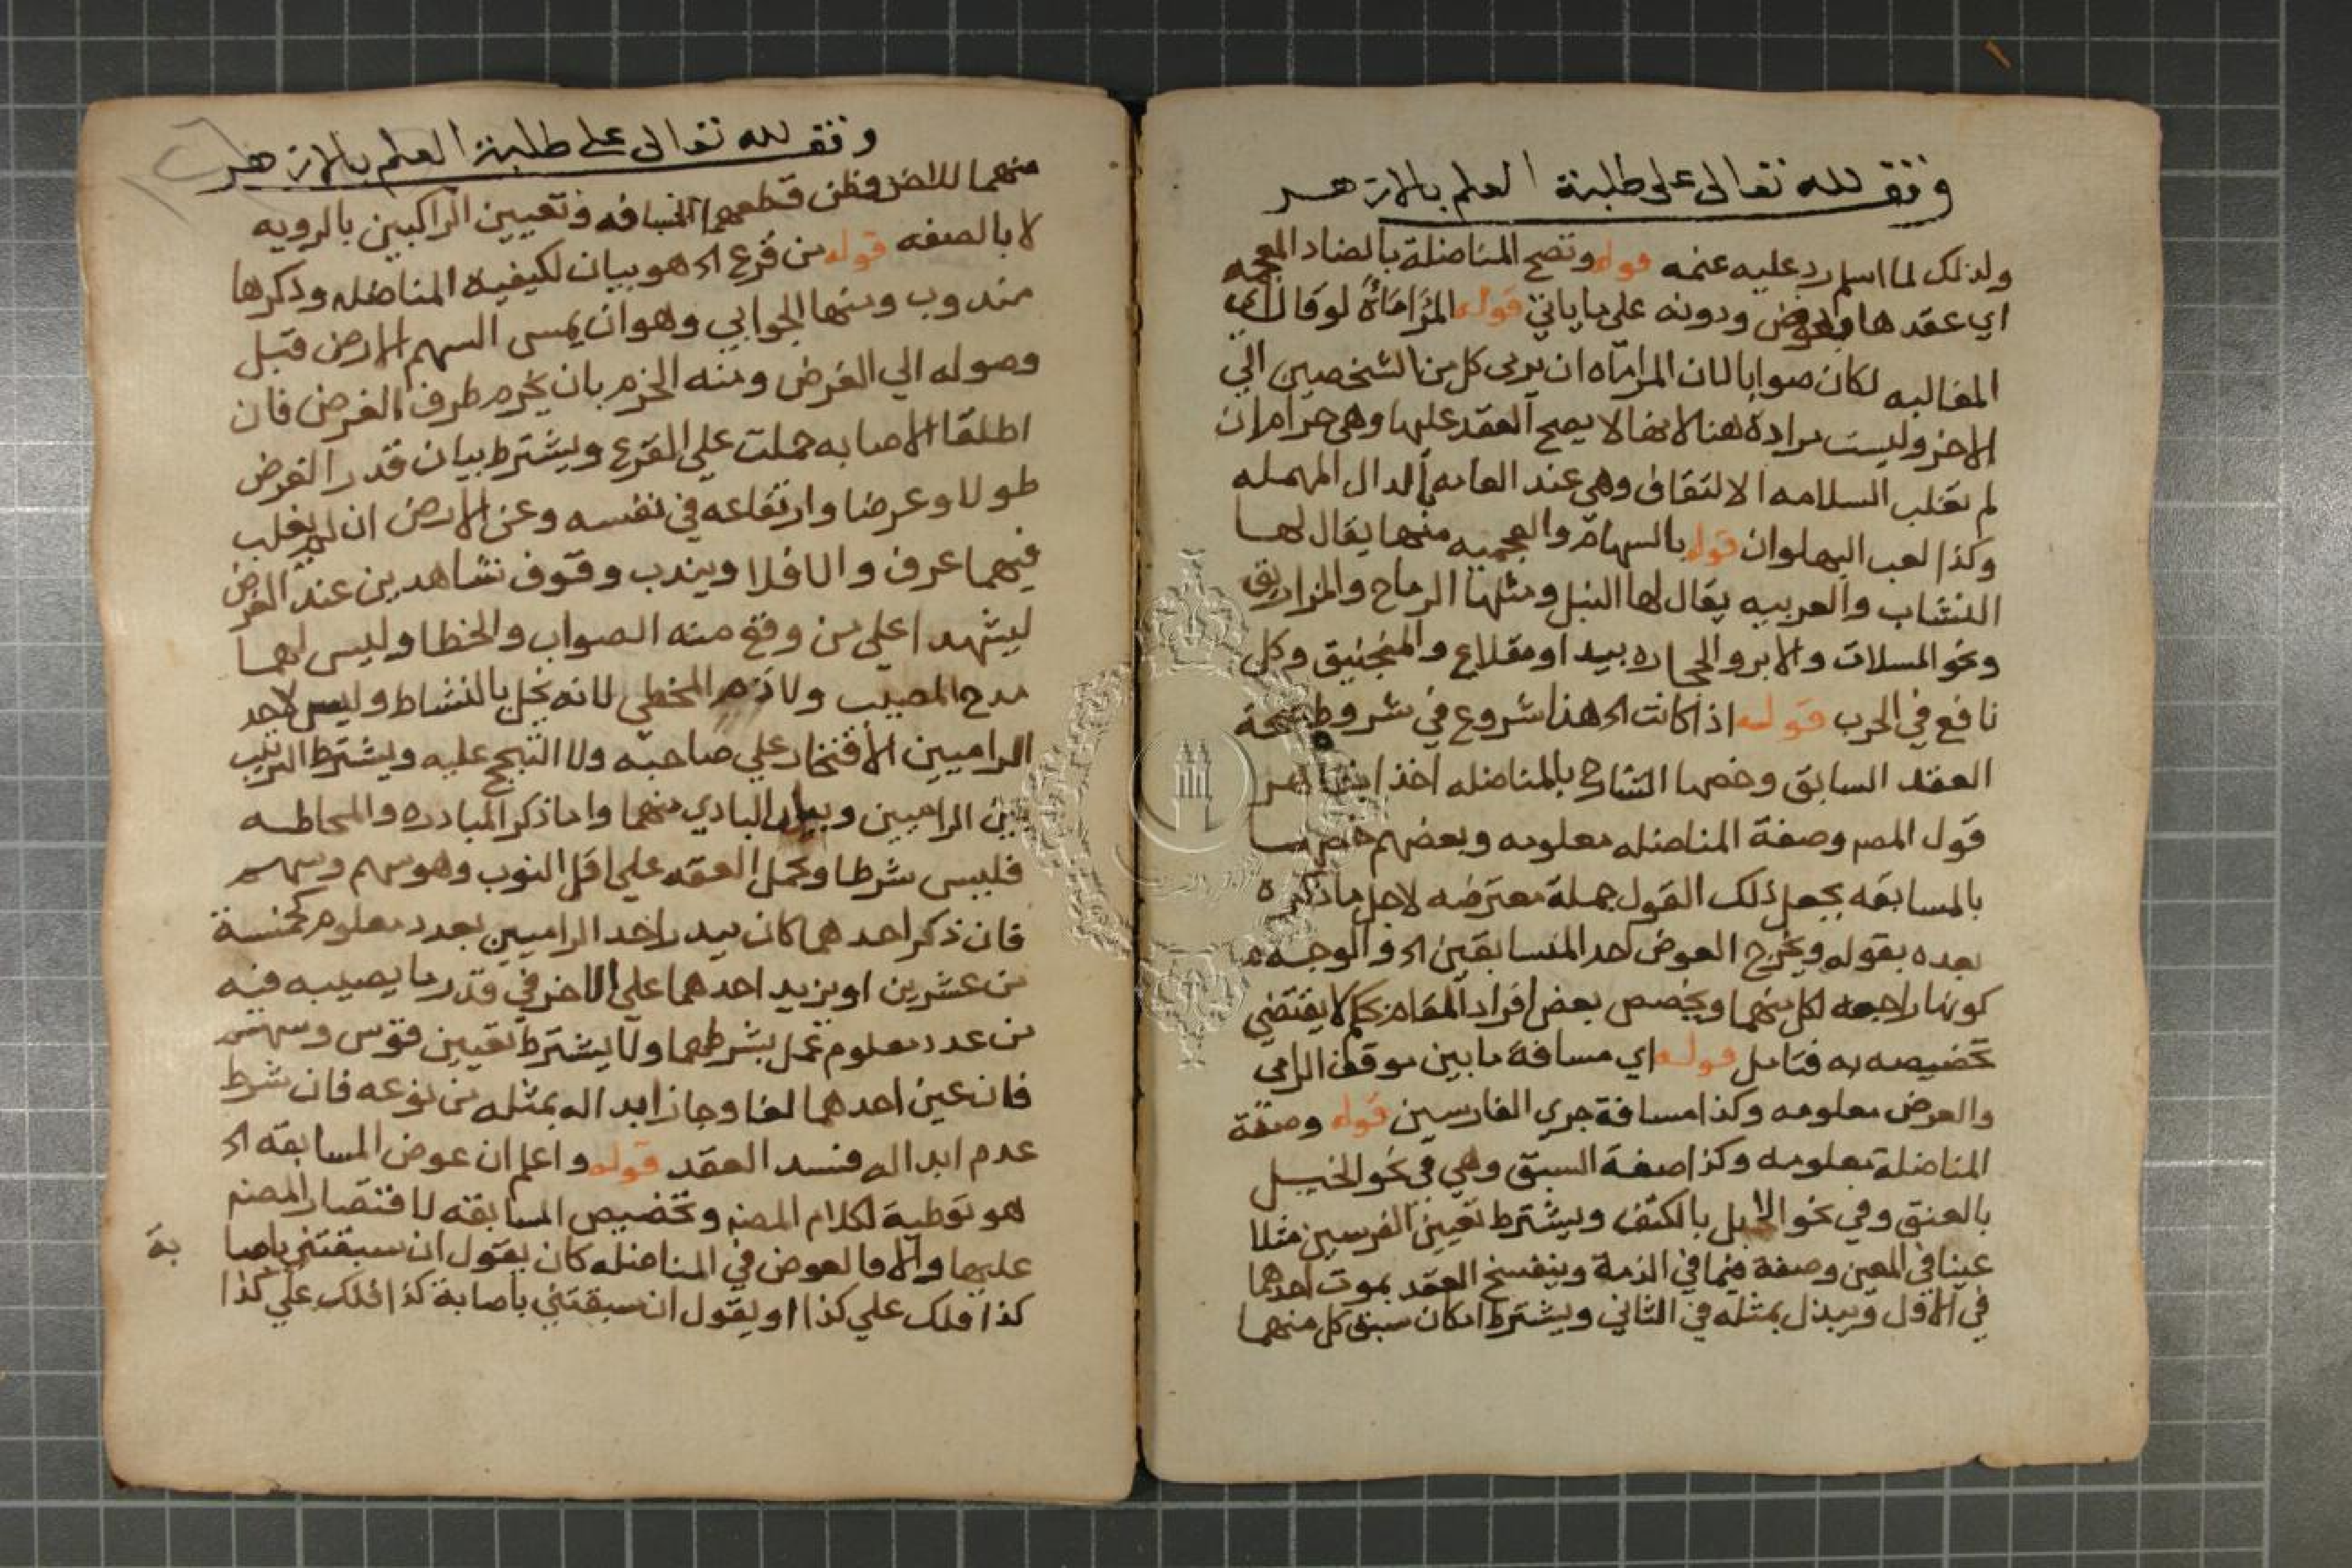 وقف لله تعالى على طلبة العلم بالازهر
ولذلك لما اسلم رد عليه غنمه قوله وتصح المناضلة بالضاد المعجمه
اي عقدها بعوض ودونه على ما ياتي قوله المراماة لو قال اي
المغالبه لكان صوابا لان المراماه ان يرمى كل من الشخصين الي
الاخر وليست مرادة هنا لانها لا يصح العقد عليها وهي حرام ان
لم تغلب السلامه الالتقاف وهي عند العامه بالدال المهمله
وكذا لعب البهلوان قوله بالسهام والعجميه منها يقال لها
النشاب والعربيه يقال لها النبل ومثلها الرماح والمزاريق
ونحو المسلات والابر والحجاره بيد او مقلاع والمنجنيق وكل
نافع في الحرب قوله اذا كانت اﻫ هذا شروع في شروط صحة
العقد السابق وخصها الشارح بالمناضله اخذا بظاهر
قول المصم وصفة المناضله معلومه وبعضهم خصها
بالمسابقه بجعل ذلك القول جملة معترضه لاجل ما ذكره
بعده بقوله ويخرج العوض احد المتسابقين اﻫ والوجه
كونها راجعه لكل منهما ويخصص بعض افراد المقام بحكم لا يقتضي
تخصيصه به فتامل قوله اي مسافة ما بين موقف الرامي
والغرض معلومه وكذا مسافة جري الفارسين قوله وصفة
المناضلة معلومه وكذا صفة السبق وهي في نحو الخيل
بالعنق وفي نحو الابل بالكتف ويشترط تعيين الفرسين مثلا
عينا في المعين وصفة فيما في الذمة وينفسخ العقد بموت احدهما
في الاول ويبدل بمثله في الثاني ويشترط امكان سبق كل منهما
وقف لله تعالى على طلبة العلم بالازهر
منهما للاخر وظن قطعهما المسافه وتعيين الراكبين بالرويه
لا بالصفه قوله من قرع اﻫ هو بيان لكيفية المناضله وذكرها
مندوب ومنها الحوابي وهو ان يمسى السهم الارض قبل
وصوله الي الغرض ومنه الخزم بان يخرم طرف الغرض فان
اطلقا الاصابه حملت علي القرع ويشترط بيان قدر الغرض
طولا وعرضا وارتفاعه في نفسه وعن الارض ان لم يغلب
فيهما عرف والا فلا ويندب وقوف شاهدين عند الغرض
ليشهدا علي من وقع منه الصواب والخطا وليس لهما
مدح المصيب ولا ذم المخطي لانه يخل بالنشاط وليس لاحد
الراميين الافتخار علي صاحبه ولا التبجح عليه ويشترط الترتيب
بين الراميين وبيان البادي منهما واما ذكر المبادره والمحاطه
فليس شرطا ويحمل العقد علي اقل النوب وهو سهم وسهم
فان ذكر احدهما كان يبدر احد الراميين بعدد معلوم كخمسة
من عشرين او يزيد احدهما علي الاخر في قدر ما يصيبه فيه
من عدد معلوم عمل بشرطهما ولا يشترط تعيين قوس وسهم
فان عين احدهما لغا وجاز ابداله بمثله من نوعه فان شرط
عدم ابداله فسد العقد قوله واعلم ان عوض المسابقه اﻫ
هو توطية لكلام المصنم وتخصيص المسابقه لاقتصار المصنم
عليها والا فالعوض في المناضله كان يقول ان سبقتني باصا بة
كذا فلك علي كذا او يقول ان سبقتني باصابة كذا فلك علي كذا